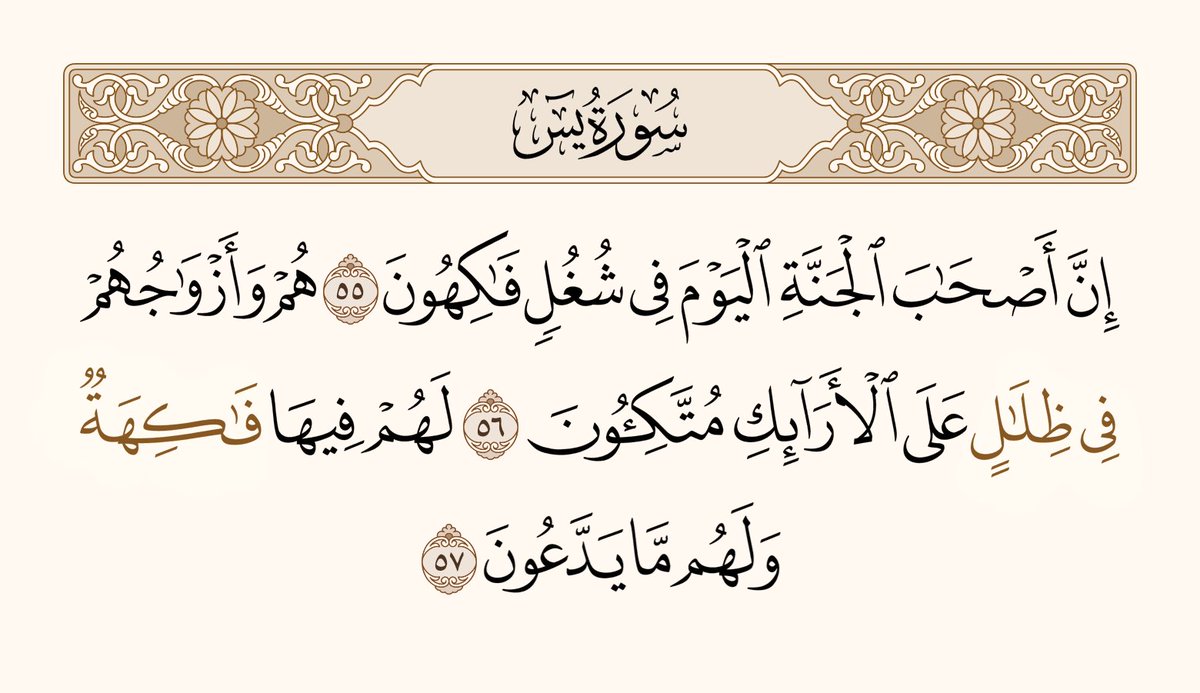 سُورَةُ يسٓ
إِنَّ أَصْحَٰبَ ٱلْجَنَّةِ ٱلْيَوْمَ فِى شُغُلٍ فَٰكِهُونَ ٥٥ هُمْ وَأَزْوَٰجُهُمْ
فِى ظِلَٰلٍ عَلَى ٱلْأَرَآئِكِ مُتَّكِـُٔونَ ٥٦ لَهُمْ فِيهَا فَٰكِهَةٌ
وَلَهُم مَّا يَدَّعُونَ ٥٧